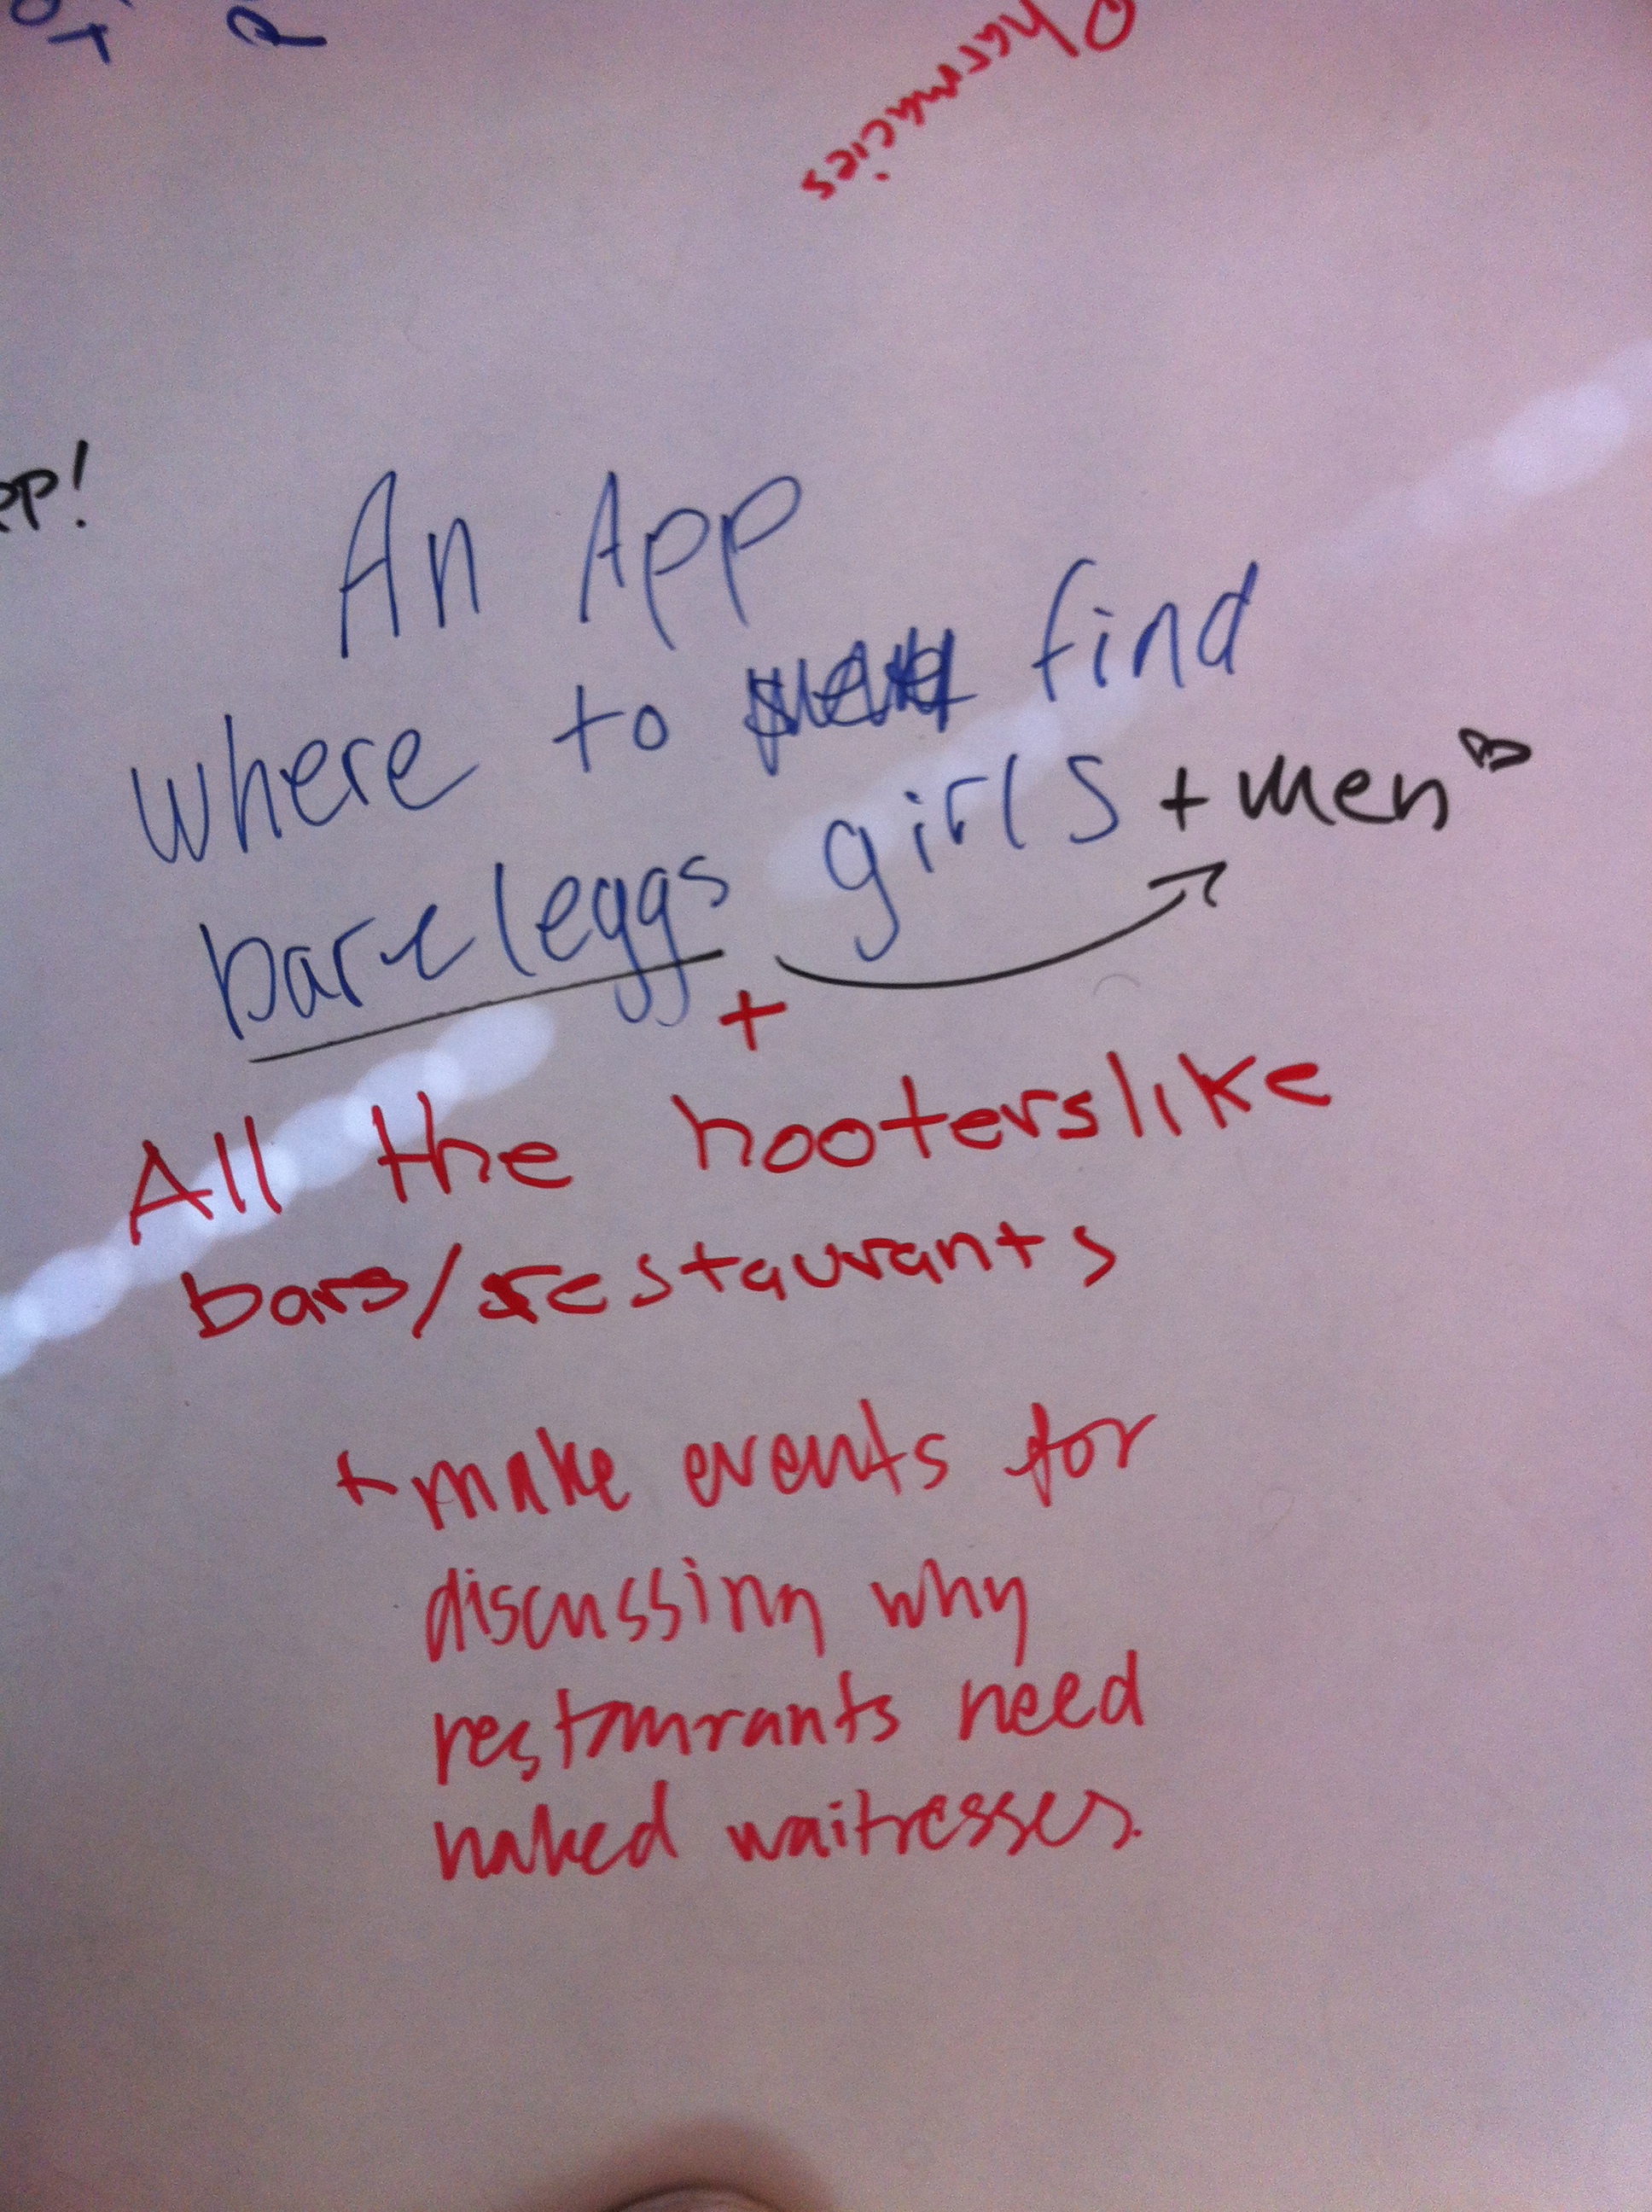 Pharmacies
An App
where to find
bareleggs girls + men
+
All the hooterslike
bars/restaurants
+ make events for
discussing why
restaurants need
naked waitresses.